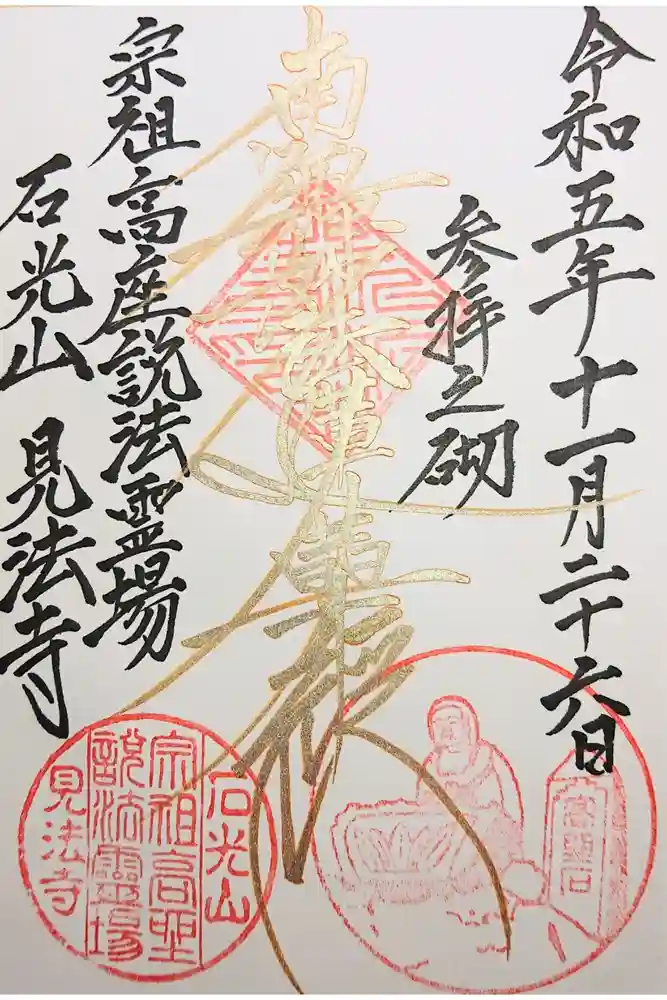 令和五年十一月二十六日
参拝之砌
南無妙法蓮華経
宗祖高座説法霊場
石光山 見法寺
高座石
石光山
宗祖高座
説法霊場
見法寺